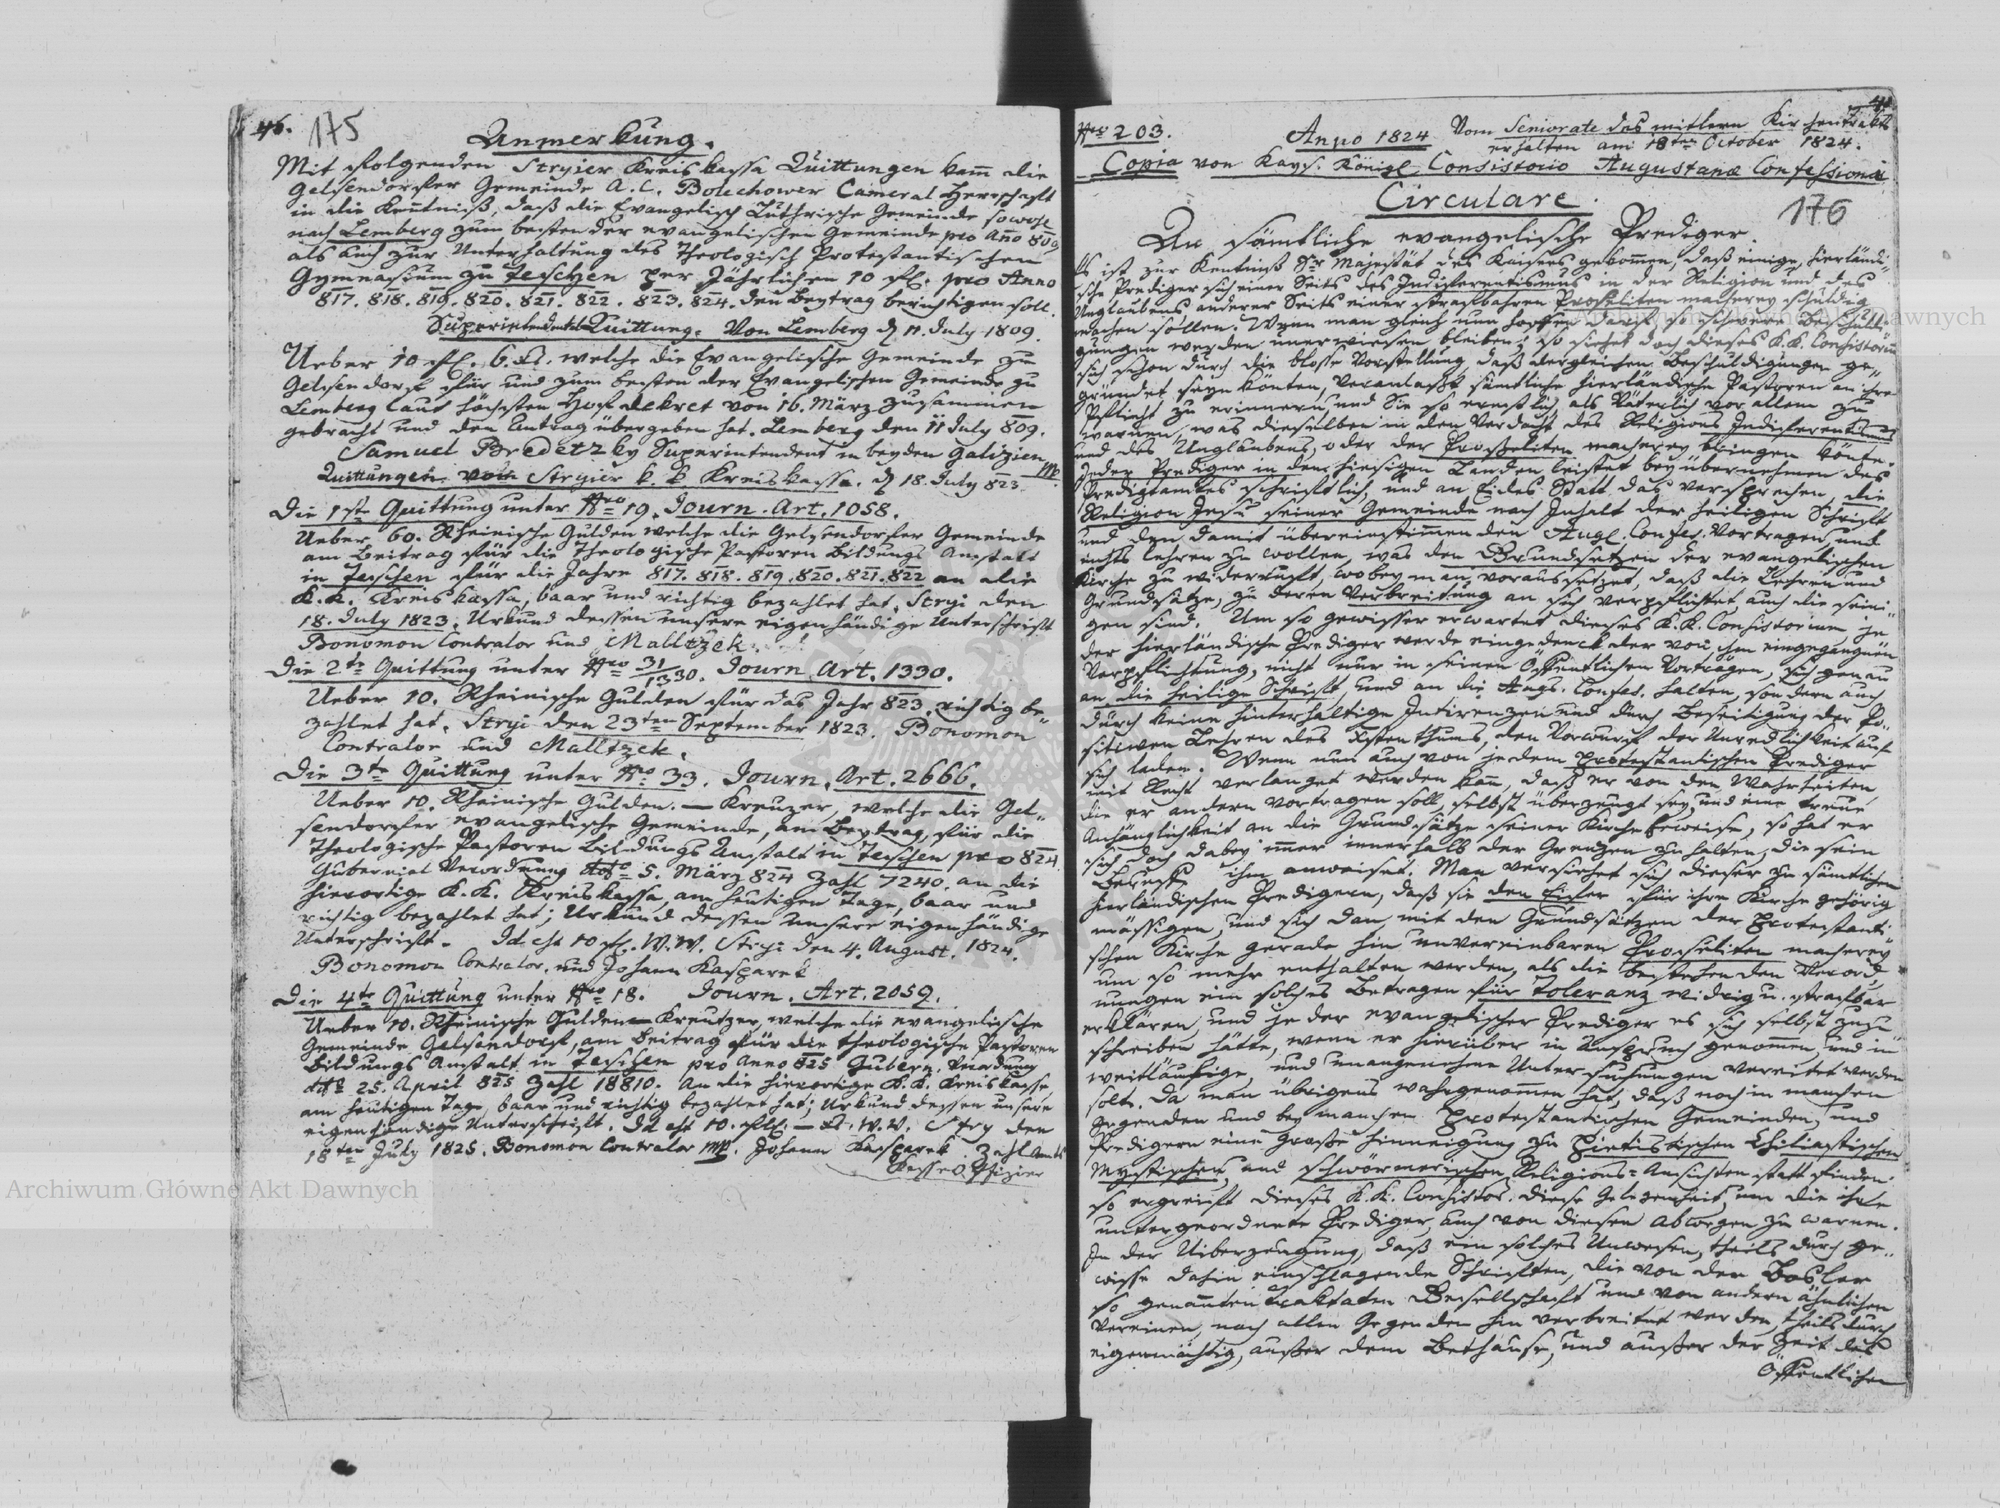 46. 175
Anmerkung.
Mit Folgenden Stryier Kreiskassa Quittungen kam die
Gelsendorfer Gemeinde A. C. Bolechower Cameral Herrschaft
in die Kenntniß, daß die Evangelisch Luthrische Gemeinde sowohl
nach Lemberg zum besten der evangelischen Gemeinde pro Año 809
als auch zur Unterhaltung des Theologisch Protestantischen
Gymnasium zu Teschen per Jährlichen 10 fl. pro Anno
817. 818. 819. 820. 821. 822. 823. 824. den Beytrag berichtigen soll.
Superintendential Quittung. Von Lemberg d 11. July 1809.
Ueber 10 fl. 6. Kr. welche die Evangelische Gemeinde zu
Gelsendorf für und zum besten der Evangelischen Gemeinde zu
Lemberg laut höchsten Hofdekret von 16. März zusammen
gebracht und den Antrag übergeben hat. Lemberg den 11 July 809.
Samuel Bredetzky Superintendent in beyden Galizien mp.
Quittungen vom Stryier k. k. Kreiskassa. d 18. July 823
Die 1ste Quittung unter Nro 19. Journ. Art. 1058.
Ueber 60. Rheinische Gulden welche die Gelsendorfer Gemeinde
am Beitrag für die Theologische Pastoren Bildungs Anstalt
in Teschen für die Jahre 817. 818. 819. 820. 821. 822 an die
K. K. Kreiskassa, baar und richtig bezahlet hat. Stryi den
18. July 1823. Urkund dessen unsere eigenhändige Unterschrift
Bonomon Contralor und Malltzek.
Die 2te Quittung unter Nro 31/1330. Journ. Art. 1330.
Ueber 10. Rheinische Gulden für das Jahr 823, richtig be-
zahlet hat. Stryi den 23ten September 1823. Bonomon
Contralor und Malltzek.
Die 3te Quittung unter Nro 33. Journ. Art. 2666.
Ueber 10. Rheinische Gulden. — Kreuzer, welche die Gel-
sendorfer evangelische Gemeinde, am Beytrag, für die
Theologische Pastoren Bildungs Anstalt in Teschen pro 824
Gubernial Verordnung dto 5. März 824 Zahl 7240. an die
hierortige K. K. Kreiskassa, am heutigen Tage, baar und
richtig bezahlet hat; Urkund dessen Unsere eigenhändige
Unterschrift. Id est 10 fl. W. W. Stryi den 4. August. 1824.
Bonomon Contralor. und Johann Kasparek
Die 4te Quittung unter Nro 18. Journ. Art. 2059.
Ueber 10. Rheinische Gulden — Kreutzer, welche die evangelische
Gemeinde Gelsendorf, am Beitrag für die theologische Pastoren
Bildungs Anstalt in Teschen pro Anno 825 Gubern. Verordnung
dto 25. April 825 Zahl 18810. An die hierortige K. K. Kreiskasse
am heutigen Tage, baar und richtig bezahlet hat; Urkund dessen unsere
eigenhändige Unterschrift. Id est 10. fl. — Kr. W. W. Stry den
18ten July 1825. Bonomon Contralor mp. Johann Kasparek Zahlamts
Kasse Offizier
Nro 203. Anno 1824 Vom Seniorate des mitlern Kirchendrikts
erhalten am 18ten October 1824.
Copia von Kays. Königl. Consistorio Augustanæ Confessionis
Circulare.
176
An sämtliche evangelische Prediger.
Es ist zur Kentniß Sr Majestät des Kaisers gekommen, daß einige hierländi-
sche Prediger sich einer Seits des Indifferentismus in der Religion und des
Unglaubens, anderer Seits einer strafbahren Proseliten macherey schuldig
machen sollen. Wenn man gleich nun hoffen darf, so schwere Beschuldi-
gungen werden unerwiesen bleiben; so siehet doch dieses K. K. Consistorium
sich schon durch die blosse Vorstellung, daß dergleichen Beschuldigungen ge-
gründet seyn könten, veranlaßt sämtliche hierländische Pastoren an ihre
Pflicht zu erinnern, und Sie so ernstlich, als Väterlich vor allem zu
warnen, was dieselben in den Verdacht des Religions Indifferentismus
und des Unglaubens, oder der Proseliten macherey bringen könte.
Jeder Prediger in den hiesigen Landen leistet bey übernehmen des
Predigtamtes schriftlich, und an Eides Statt das versprechen, die
Religion Jesu seiner Gemeinde nach Inhalt der heiligen Schrift
und den damit übereinstimmenden Augs. Confes. Vortragen und
nichts lehren zu wollen, was den Grundsätzen der evangelischen
Kirche zu widerläuft, wobey man voraussetzet, daß die Lehren und
Grundsätze, zu deren Verbreitung an sich verpflichtet, auch die seini-
gen sind. Um so gewisser erwartet dieses K. K. Consistorium je
der hierländische Prediger werde eingedenck der von ihm eingegangnen
Verpflichtung, nicht nur in seinen Öffentlichen Vorträgen, sich genau
an die heilige Schrift und an die Augs. Confes. halten, sondern auch
durch keine hinterhaltige und durch Beseitigung der Po-
sitiven Lehren des Xstenthums, den Vorwurf der Unredlichkeit auf
sich laden. Wenn nun auch von jedem Protestantischen Prediger
mit Recht verlanget werden kan, daß er von den Wahrheiten
die er andern Vortragen soll, selbst überzeugt sey, und eine treue
Anhänglichkeit an die Grundsätze seiner Kirche beweise, so hat er
sich doch dabey immer innerhalb der Grenzen zu halten, die sein
Beruf ihm anweiset. Man versiehet sich dieser zu sämtlichen
hierländischen Predigern, daß sie den Eifer für ihre Kirche gehörig
mässigen, und sich dan mit den Grundsätzen der Protestanti-
schen Kirche gerade hin unvereinbaren Proseliten macherey
um so mehr enthalten werden, als die bestehenden Verord-
nungen ein solches Betragen für Toleranz widrig u. strafbar
erklären, und jeder evangelischer Prediger es sich selbst zuzu
schreiben hätte, wenn er hierüber in Anspruch genommen, und in
weitläufige, und unangenehme Untersuchungen vereitet werden
solte. Da man übrigens wahrgenommen hat, daß noch in manchen
Gegenden und bey manchen Protestantischen Gemeinden, und
Predigern eine große Hinneigung zu Pietistischen Chiliastischen
Mystischen, und schwärmerischen Religions-Ansichten statt finden.
so ergreift dieses K. K. Consistor. diese Gelegenheit, um die ihr
untergeordnete Prediger, auch von diesen Abwegen zu warnen.
In der Ueberzeugung, daß ein solches Unwesen, theils durch ge-
wisse dahin einschlagende Schriften, die von der Basler
so genannten Traktaten Gesellschaft und von andern ähnlichen
Vereinen, nach allen Gegenden hin verbreitet werden, theils durch
eigenmächtig, außer dem Bethause, und außer der Zeit des
Öffentlichen
Archiwum Główne Akt Dawnych
Archiwum Główne Akt Dawnych